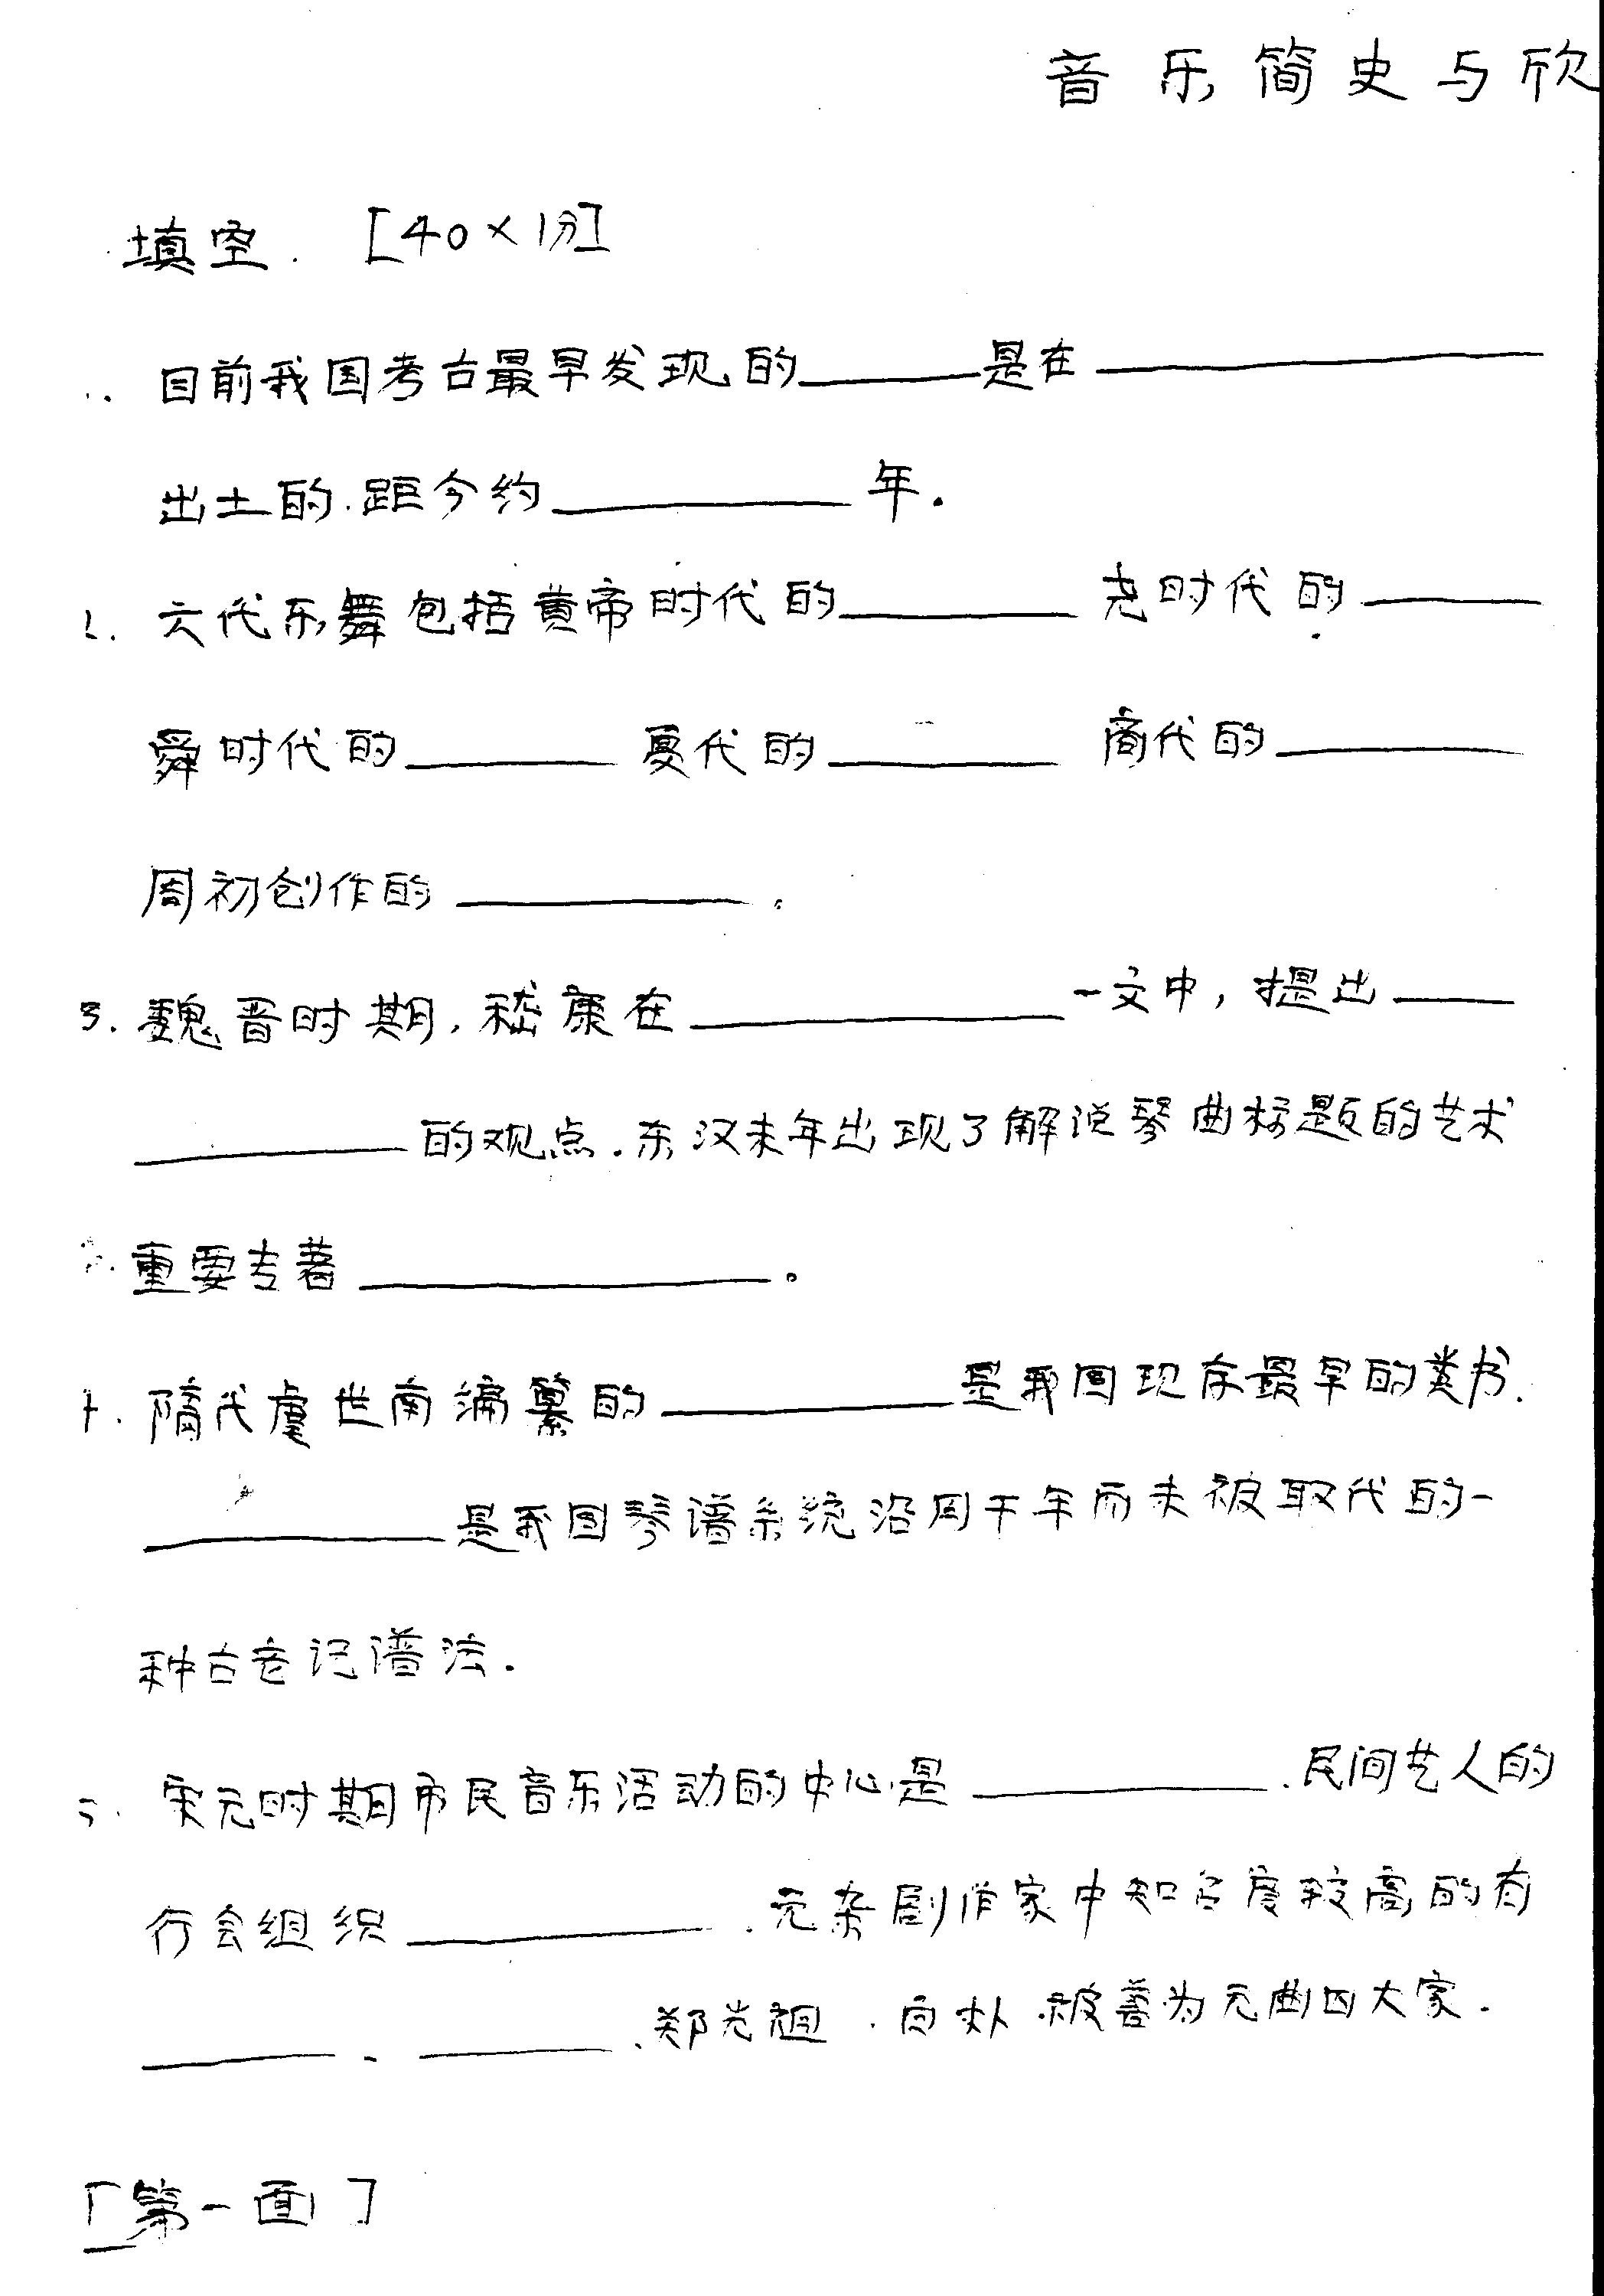 音乐简史与欣
填空. [40×1分]
1. 目前我国考古最早发现的______是在____________
出土的.距今约________年.
2. 六代乐舞包括黄帝时代的______尧时代的______
舜时代的______夏代的______商代的______
周初创作的________。
3. 魏晋时期,嵇康在__________一文中,提出____
________的观点.东汉末年出现了解说琴曲标题的艺术
重要专著____________。
4. 隋代虞世南编纂的________是我国现存最早的类书.
________是我国琴谱系统沿用千年而未被取代的一
种古老记谱法.
5. 宋元时期市民音乐活动的中心是________.民间艺人的
行会组织________.元杂剧作家中知名度较高的有
______、______、郑光祖.白朴.被誉为元曲四大家.
[第一面]